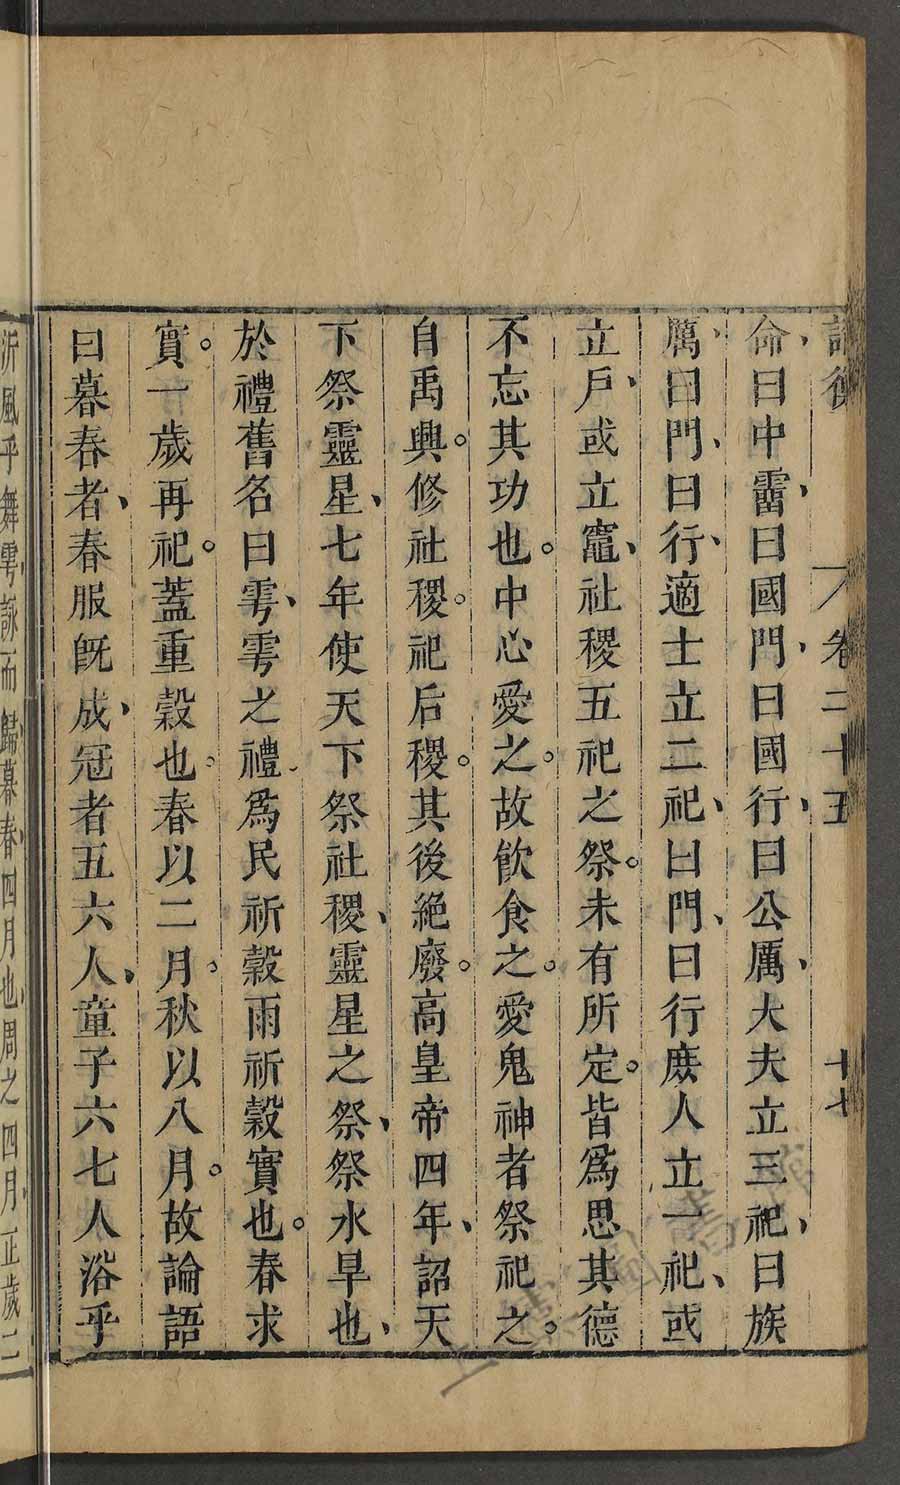 論衡 卷二十五 十七
命、曰中霤、曰國門、曰國行、曰公厲、大夫立三祀、曰族
厲、曰門、曰行、適士立二祀、曰門、曰行庶人立一祀、或
立戶、或立竈、社稷五祀之祭。未有所定。皆爲思其德
不忘其功也。中心愛之。故飲食之。愛鬼神者祭祀之。
自禹興。修社稷。祀后稷。其後絕廢。高皇帝四年、詔天
下祭靈星、七年使天下祭社稷、靈星之祭、祭水旱也、
於禮舊名曰雩、雩之禮、爲民祈穀雨祈穀實也。春求
實。一歲再祀。蓋重穀也。春以二月。秋以八月。故論語
曰暮春者、春服既成、冠者五六人、童子六七人浴乎
沂風乎舞雩詠而歸暮春四月也周之四月正歲二